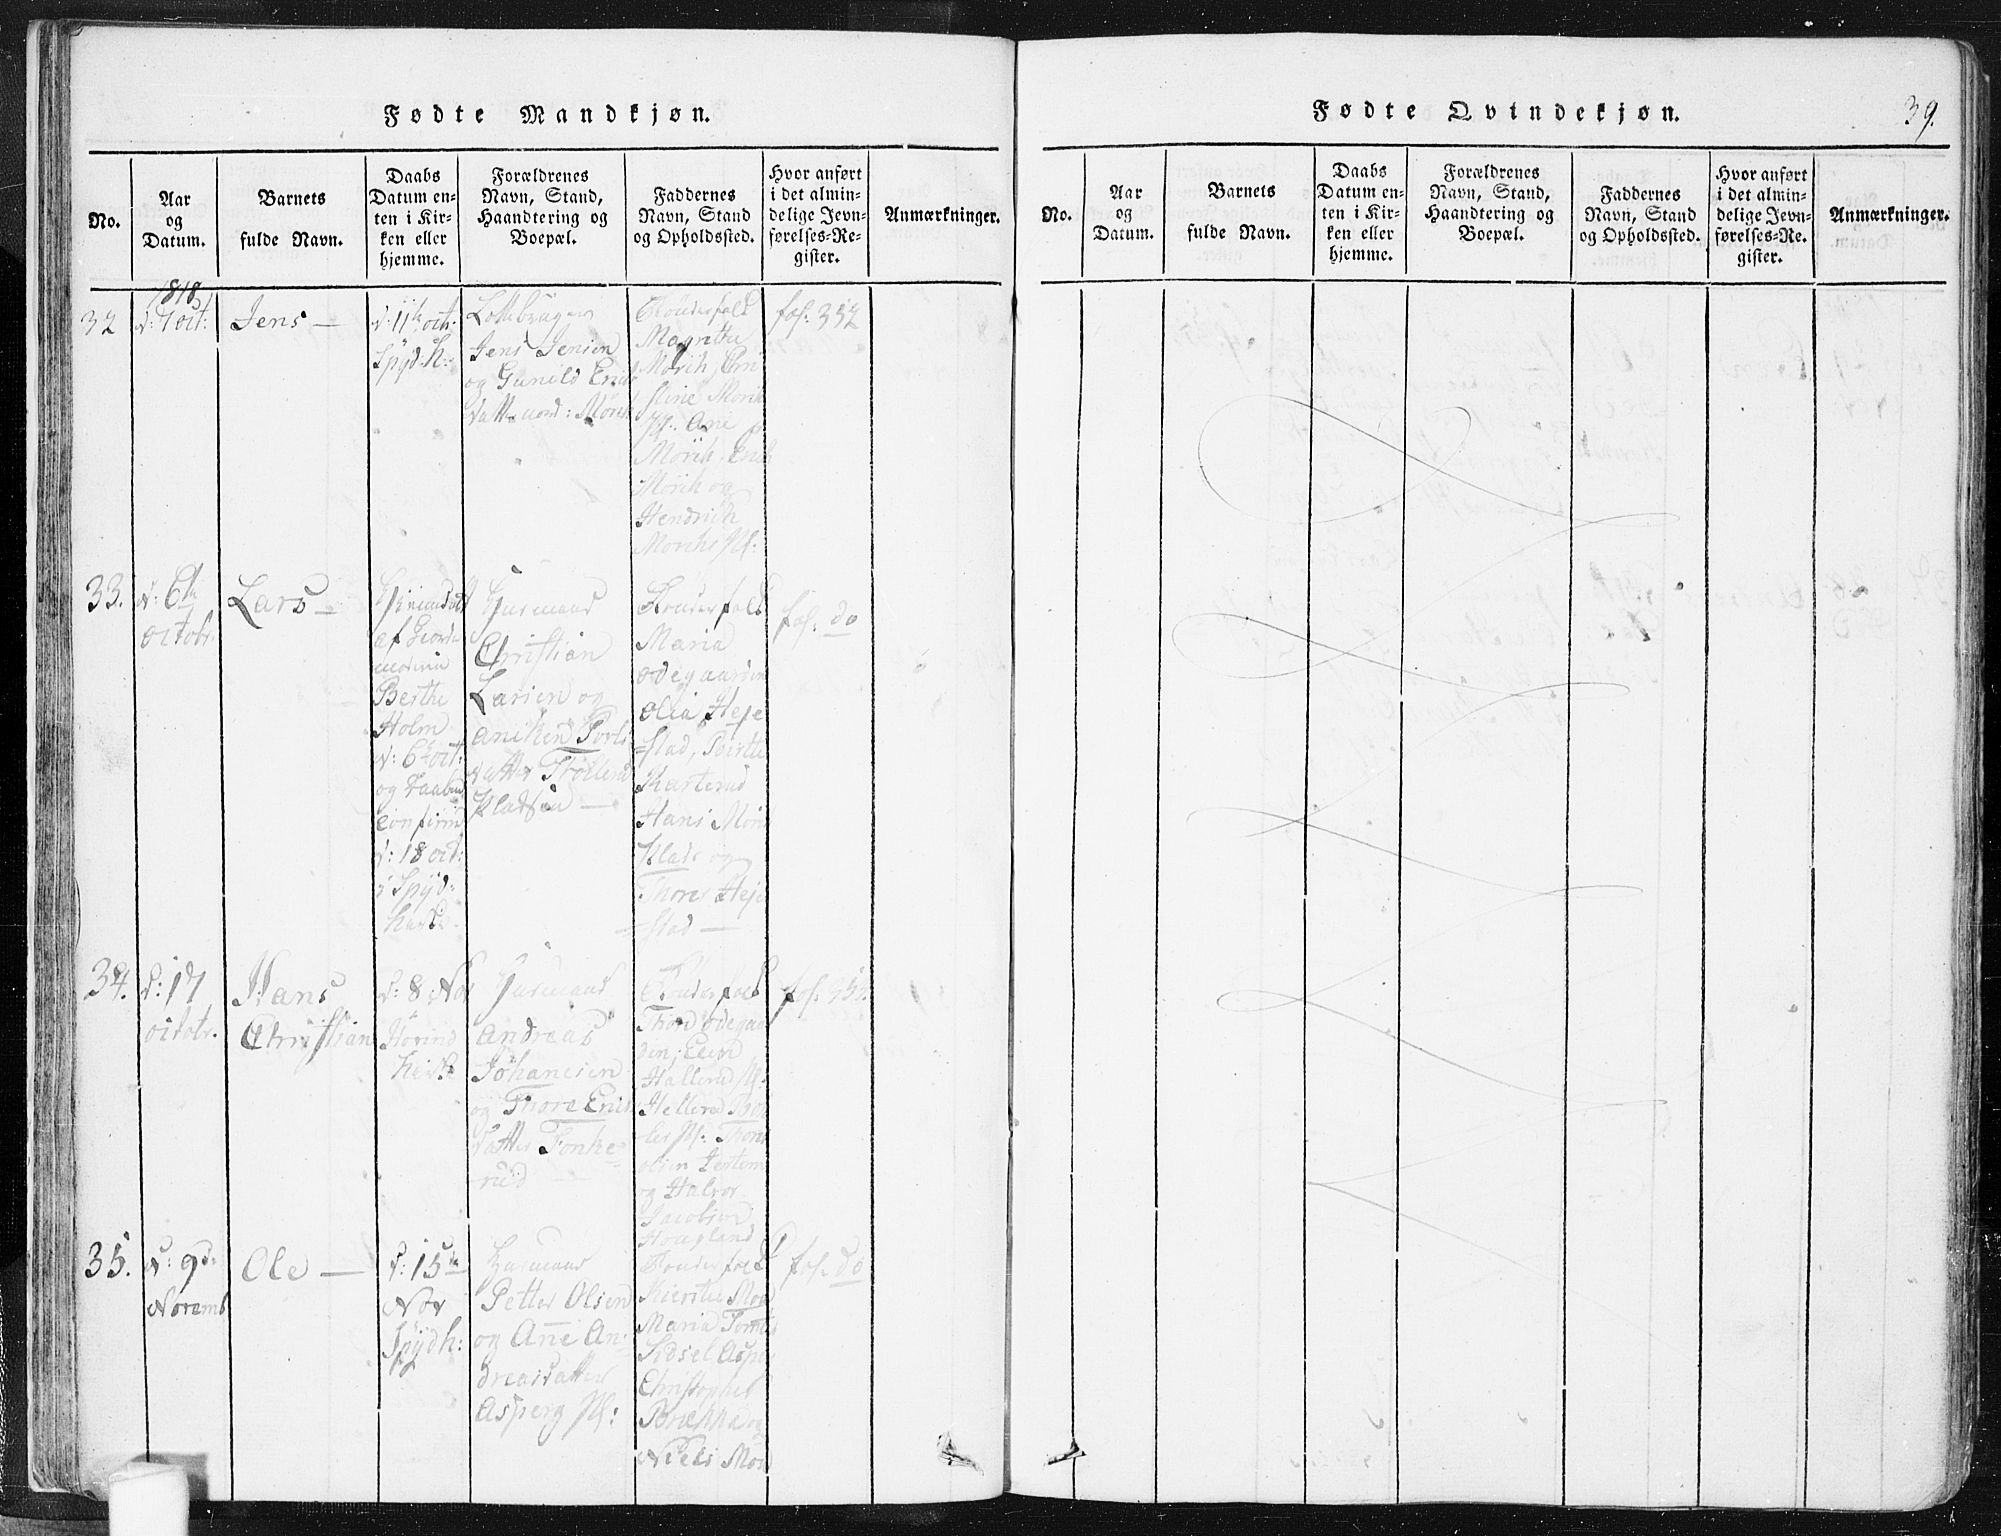 Fødte Mandkjøn.
No.
Aar
og
Datum.
Barnets
fulde Navn.
Daabs
Datum en-
ten i Kir-
ken eller
hjemme.
Forældrenes
Navn, Stand,
Haandtering og
Boepæl.
Faddernes
Navn, Stand
og Opholdssted.
Hvor anført
i det almin-
delige Jevn-
førelses-Re-
gister.
Anmærkninger.
32
1818
d: 7 oct:
Jens —
d: 11te oct.
Spyd:h:
Jens Jensen
og Gunild Erics
datter nord: Mörk
Fadderfolk
Magrethe
Mörk,
stine Mörk
Pl. Ane
Mörk, Erik
Mörk og
Hendrich
Mörks Pl:
fol: 352
33.
d: 6te
octobr.
Lars —
Hiemdøbt
af Jorde
moderen
Berthe
Holm
d: 6te oct:
og Daaben
confirm
d: 18 oct:
i Spyd-
kirke.
Huusmand
Christian
Larsen og
Aniken Povls
datter Tröllerud
Pladsen —
Fadderfolk
Maria
Ødegaarden
Olia Heje
=stad, Berthe
Karterud
Hans
Klads og
Thores Heje
=stad —
fol: do
34.
d: 17
octobr.
Hans
Christian
d: 8 Nov
Hovind
kirke
Huusmand
Andreas
Johanesen
og Thore Erics
datter Fonke=
rud —
Fadderfolk
Thore Ødegaar
den,
Hallerud Pl:
Hellerud
Pl: Thore
olsen
og Halvor
Jacobsen
Hougland
35.
d: 9de
Novemb
Ole —
d: 15de
Nov
Spydh:
Huusmand
Petter Olsen
og Anne An-
dreasdatter
Asperg Pl:
Fadderfolk
Kierstie
Maria
Sidsel Asper
Christopher
Brække og
Niels
fol: do
Fødte Qvindekjøn.
39.
No.
Aar
og
Datum.
Barnets
fulde Navn.
Daabs
Datum en-
ten i Kir-
ken eller
hjemme.
Forældrenes
Navn, Stand,
Haandtering og
Boepæl.
Faddernes
Navn, Stand
og Opholdssted.
Hvor anført
i det almin-
delige Jevn-
førelses-Re-
gister.
Anmærkninger.